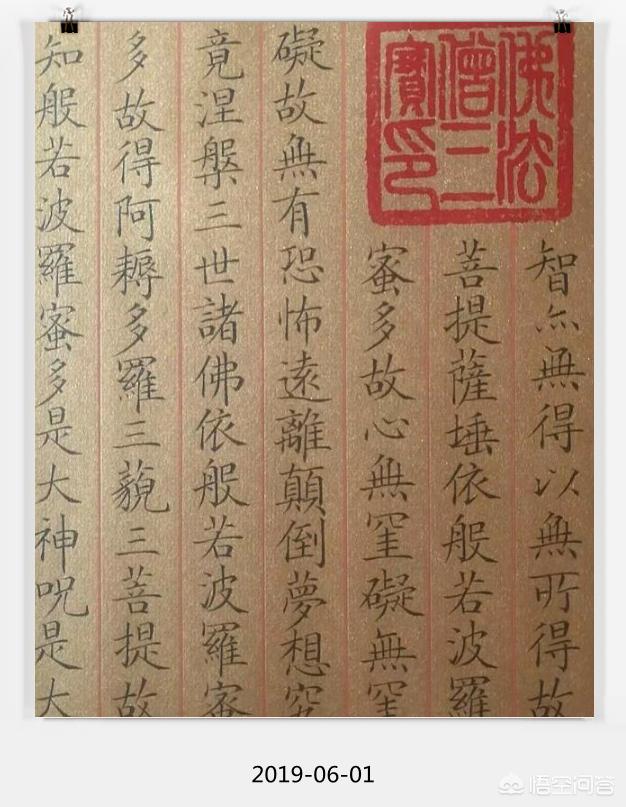 佛法
僧三
寶印
智亦無得以無所得故
菩提薩埵依般若波羅
蜜多故心無罣礙無罣
礙故無有恐怖遠離顛倒夢想究
竟涅槃三世諸佛依般若波羅蜜
多故得阿耨多羅三藐三菩提故
知般若波羅蜜多是大神呪是大
2019-06-01
悟空问答